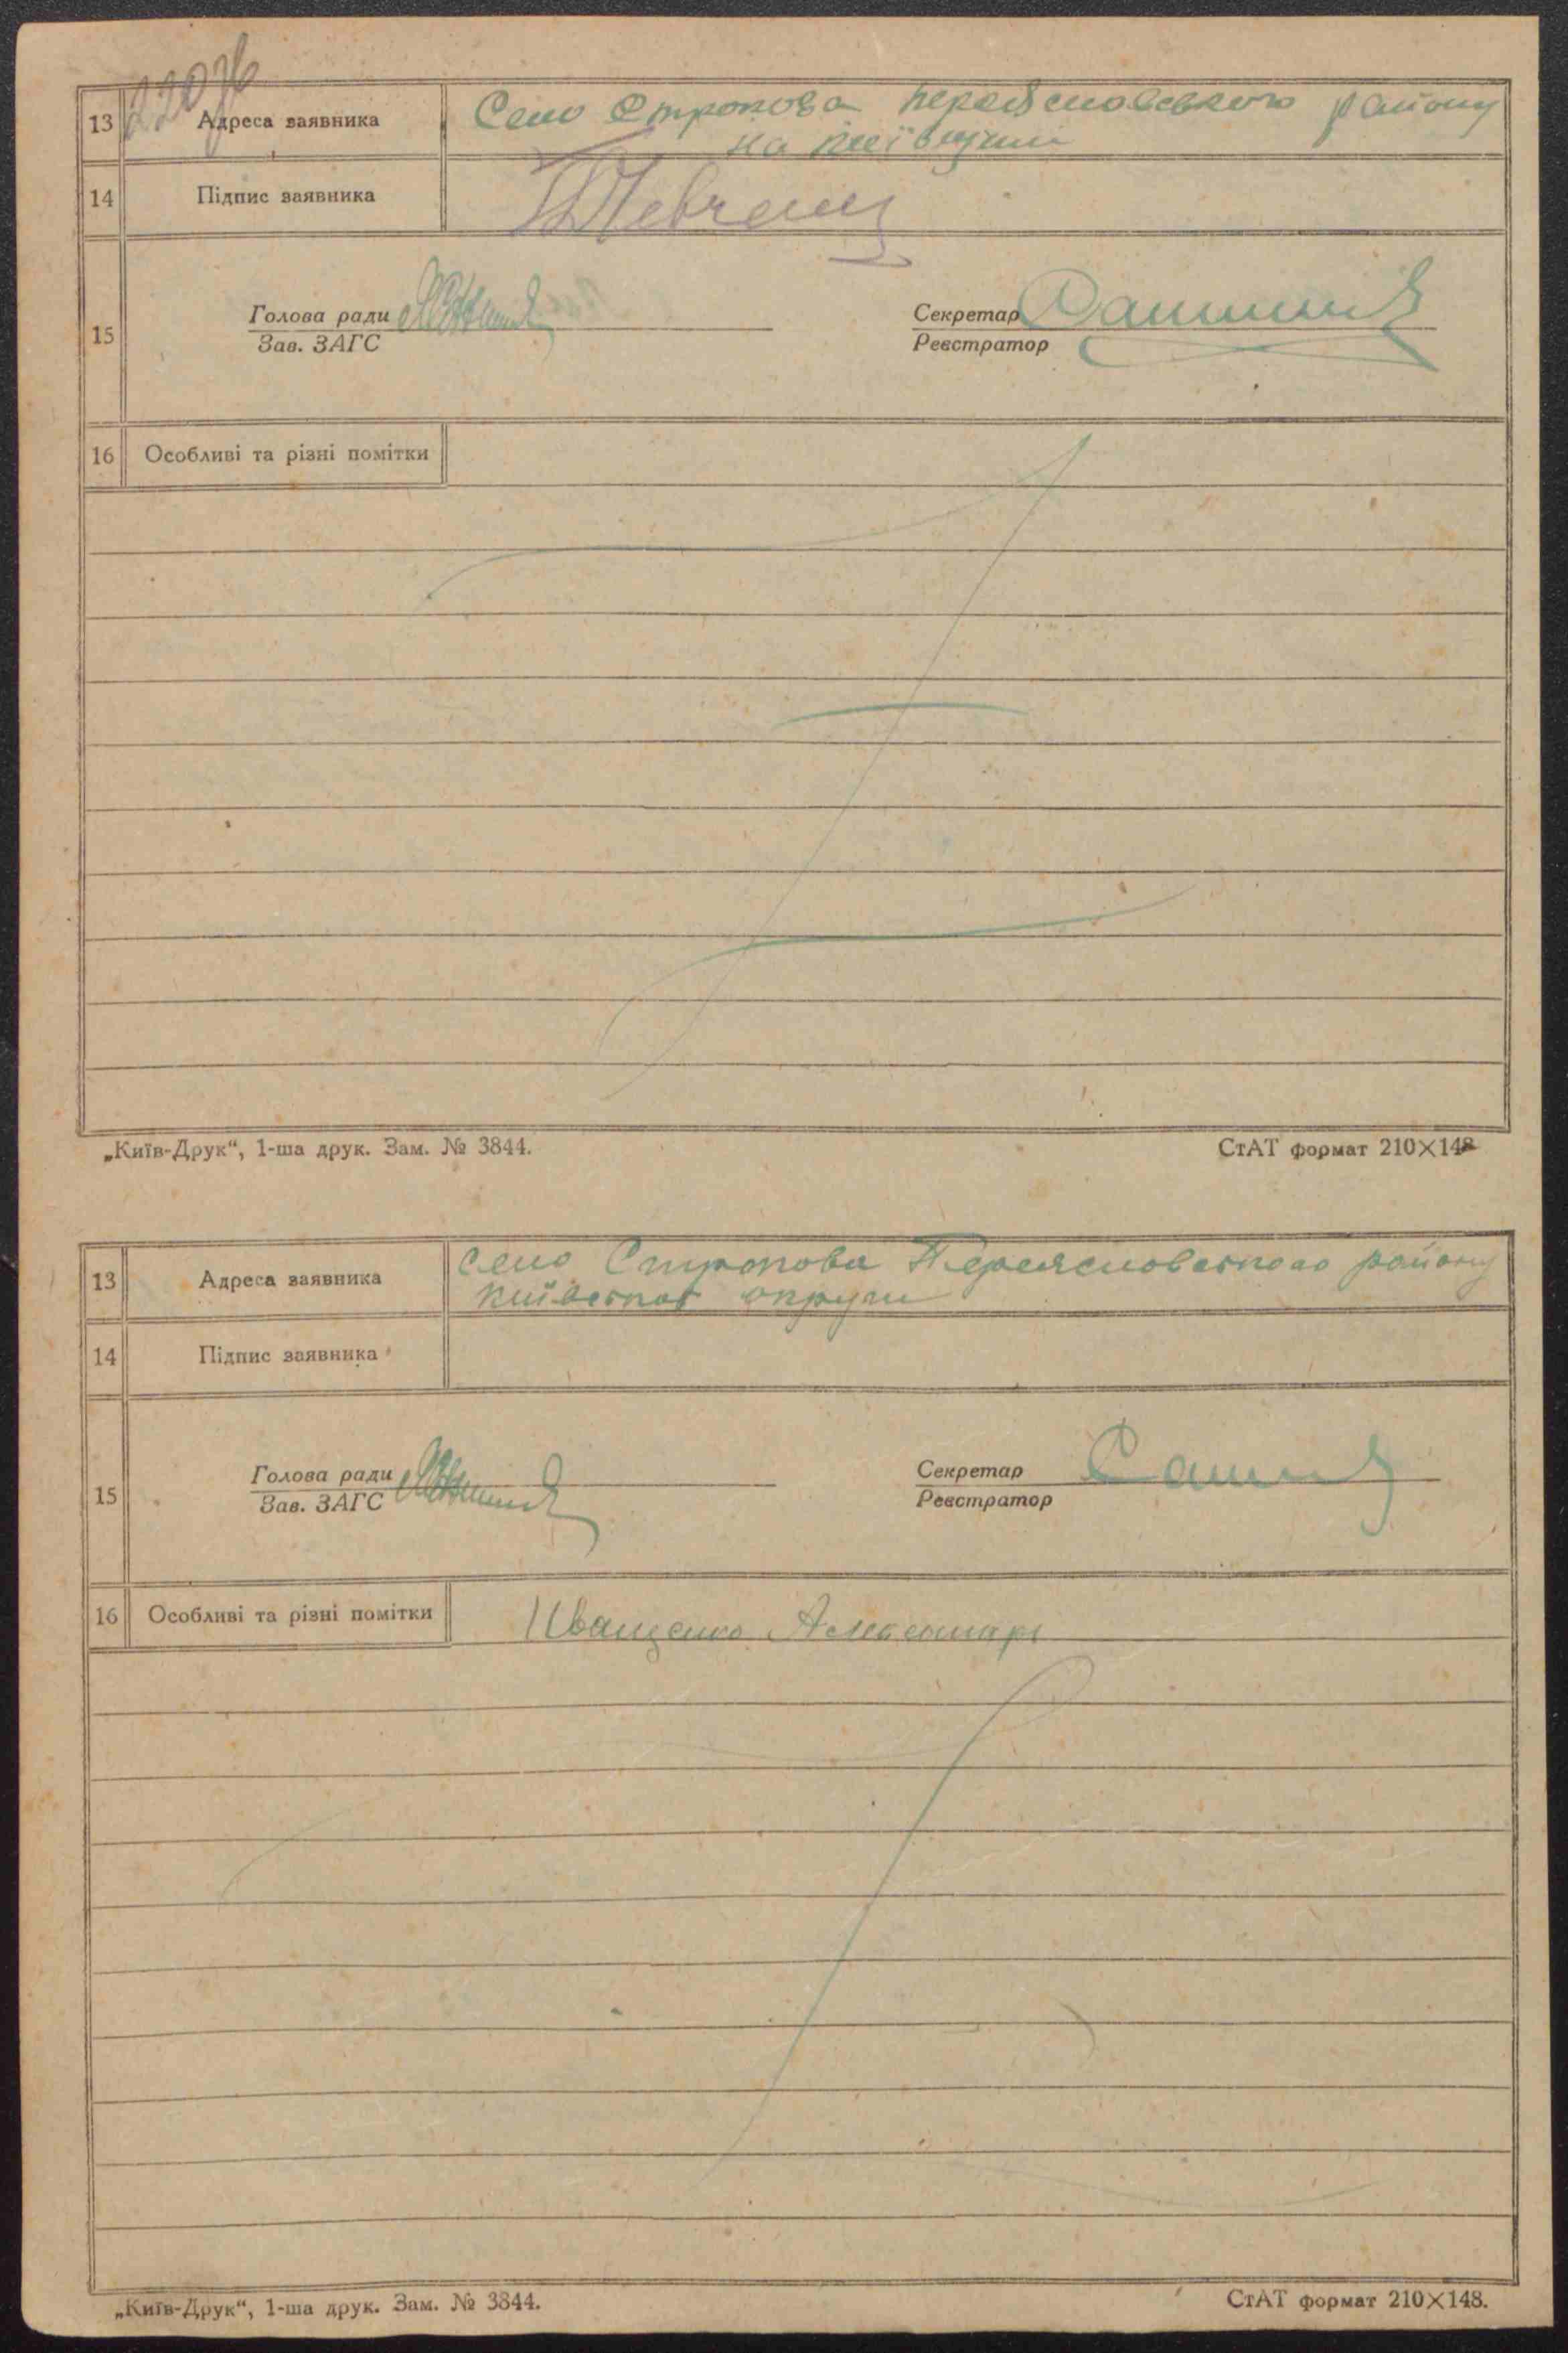 13 Адреса заявника Село Строкова Переяславського району
на Київщині
14 Підпис заявника
15 Голова ради
Зав. ЗАГС
Секретар
Реєстратор
16 Особливі та різні помітки
„Київ-Друк“, 1-ша друк. Зам. № 3844.
СтАТ формат 210×148
13 Адреса заявника Село Строкова Переяславського району
Київської округи
14 Підпис заявника
15 Голова ради
Зав. ЗАГС
Секретар
Реєстратор
16 Особливі та різні помітки Иващенко
„Київ-Друк“, 1-ша друк. Зам. № 3844.
СтАТ формат 210×148.